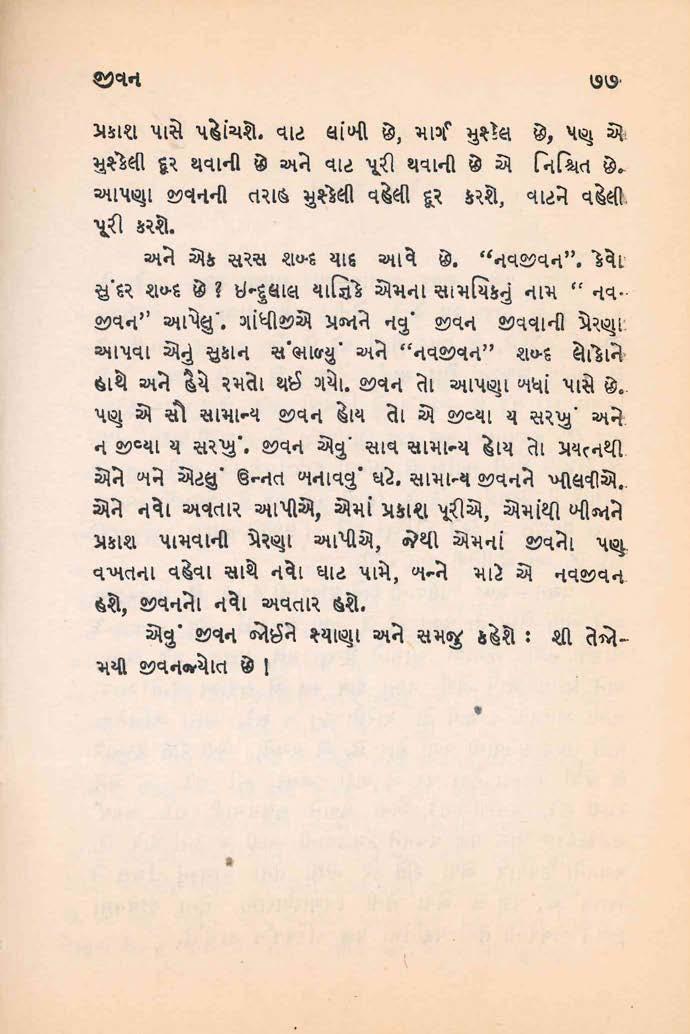 જીવન ૭૭
પ્રકાશ પાસે પહોંચશે. વાટ લાંબી છે, માર્ગ મુશ્કેલ છે, પણ એ
મુશ્કેલી દૂર થવાની છે અને વાટ પૂરી થવાની છે એ નિશ્ચિત છે.
આપણા જીવનની તરાહ મુશ્કેલી વહેલી દૂર કરશે, વાટને વહેલી
પૂરી કરશે.
અને એક સરસ શબ્દ યાદ આવે છે. “નવજીવન”. કેવો
સુંદર શબ્દ છે? ઇન્દુલાલ યાજ્ઞિકે એમના સામયિકનું નામ “ નવ-
જીવન” આપેલું. ગાંધીજીએ પ્રજાને નવું જીવન જીવવાની પ્રેરણા
આપવા એનું સુકાન સંભાળ્યું અને “નવજીવન” શબ્દ લોકોને
હાથે અને હૈયે રમતો થઈ ગયો. જીવન તો આપણા બધાં પાસે છે.
પણ એ સૌ સામાન્ય જીવન હોય તો એ જીવ્યા ય સરખું અને
ન જીવ્યા ય સરખું. જીવન એવું સાવ સામાન્ય હોય તો પ્રયત્નથી
એને બને એટલું ઉન્નત બનાવવું ઘટે. સામાન્ય જીવનને ખીલવીએ.
એને નવો અવતાર આપીએ, એમાં પ્રકાશ પૂરીએ, એમાંથી બીજાને
પ્રકાશ પામવાની પ્રેરણા આપીએ, જેથી એમનાં જીવનો પણ
વખતના વહેવા સાથે નવો ઘાટ પામે, બન્ને માટે એ નવજીવન
હશે, જીવનનો નવો અવતાર હશે.
એવું જીવન જોઈને શ્યાણા અને સમજુ કહેશે : શી તેજો-
મયી જીવનજ્યોત છે !